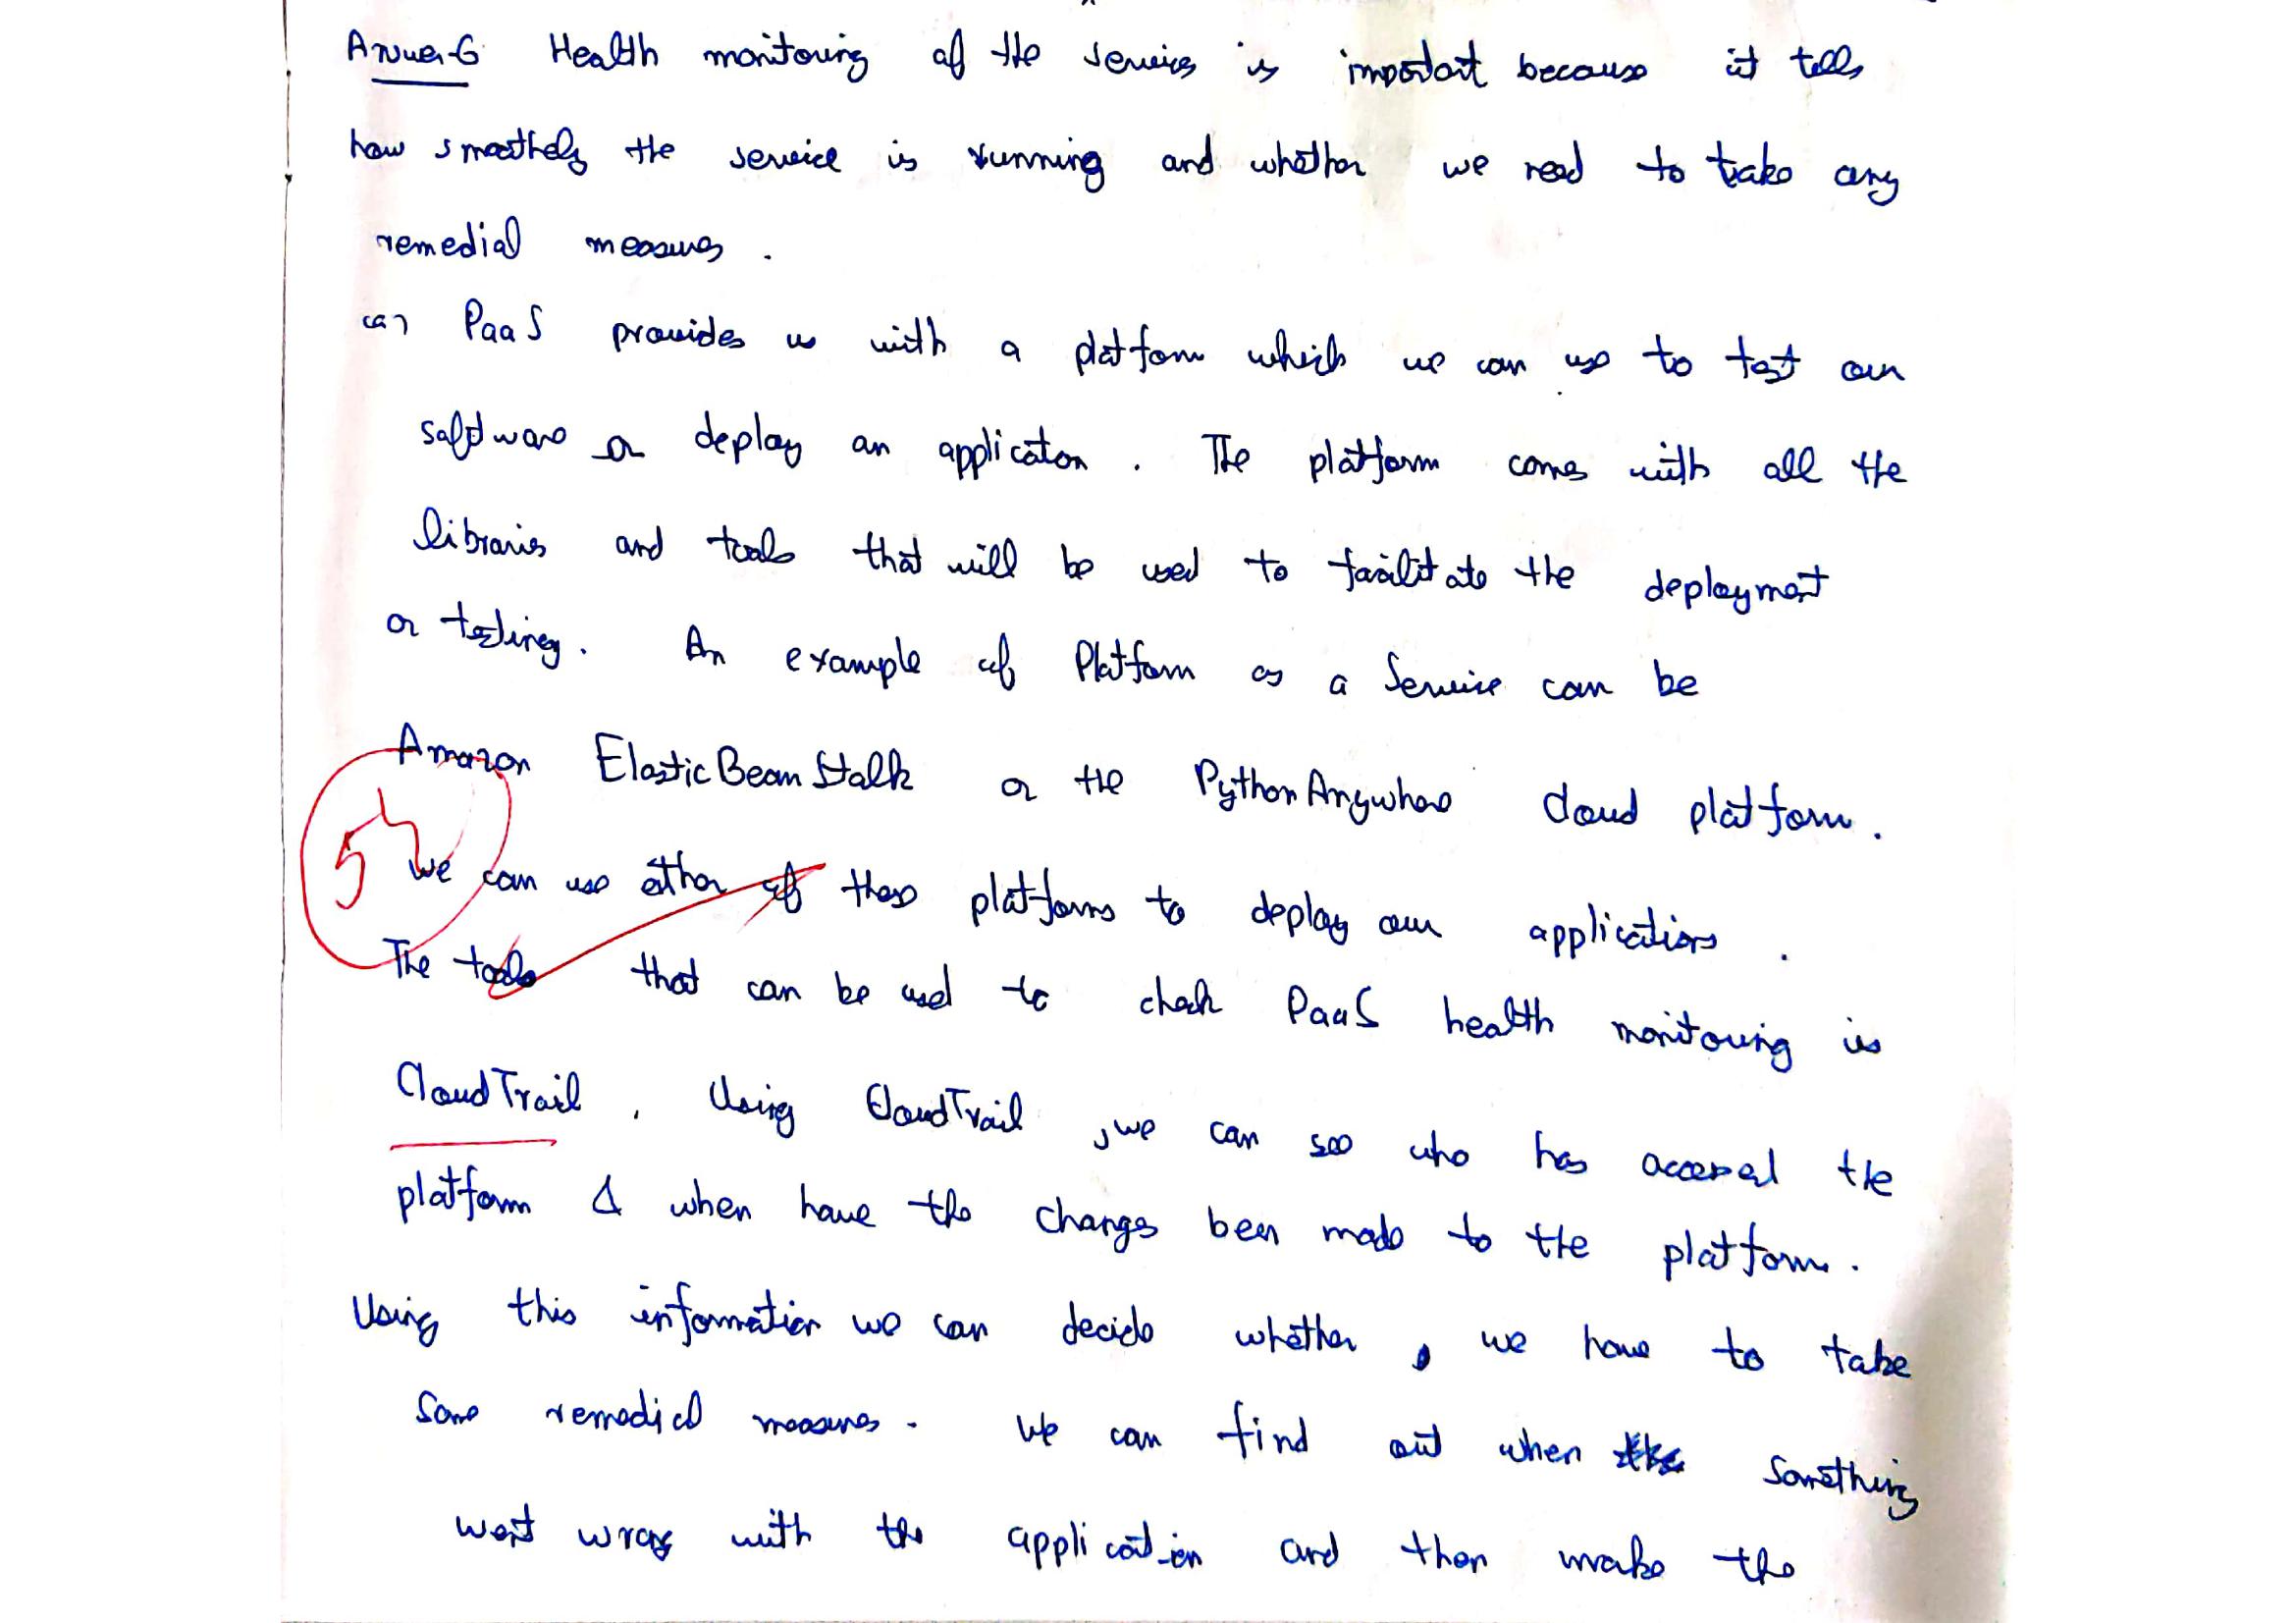 Answer-6 Health monitoring of the services is important because it tells
how smoothely the service is running and whether we need to take any
remedial measures.
(a) PaaS provides us with a platform which we can use to test our
software or deploy an applicaton. The platform comes with all the
libraries and tools that will be used to facilitate the deployment
or testing. An example of Platform as a Service can be
Amazon Elastic BeanStalk or the PythonAnywhere cloud platform.
5½
We can use either of these platforms to deploy our applications.
The tools that can be used to check PaaS health monitoring is
CloudTrail. Using CloudTrail, we can see who has accessed the
platform & when have the changes been made to the platform.
Using this information we can decide whether, we have to take
some remedical measures. We can find out when something
went wrong with the application and then make the